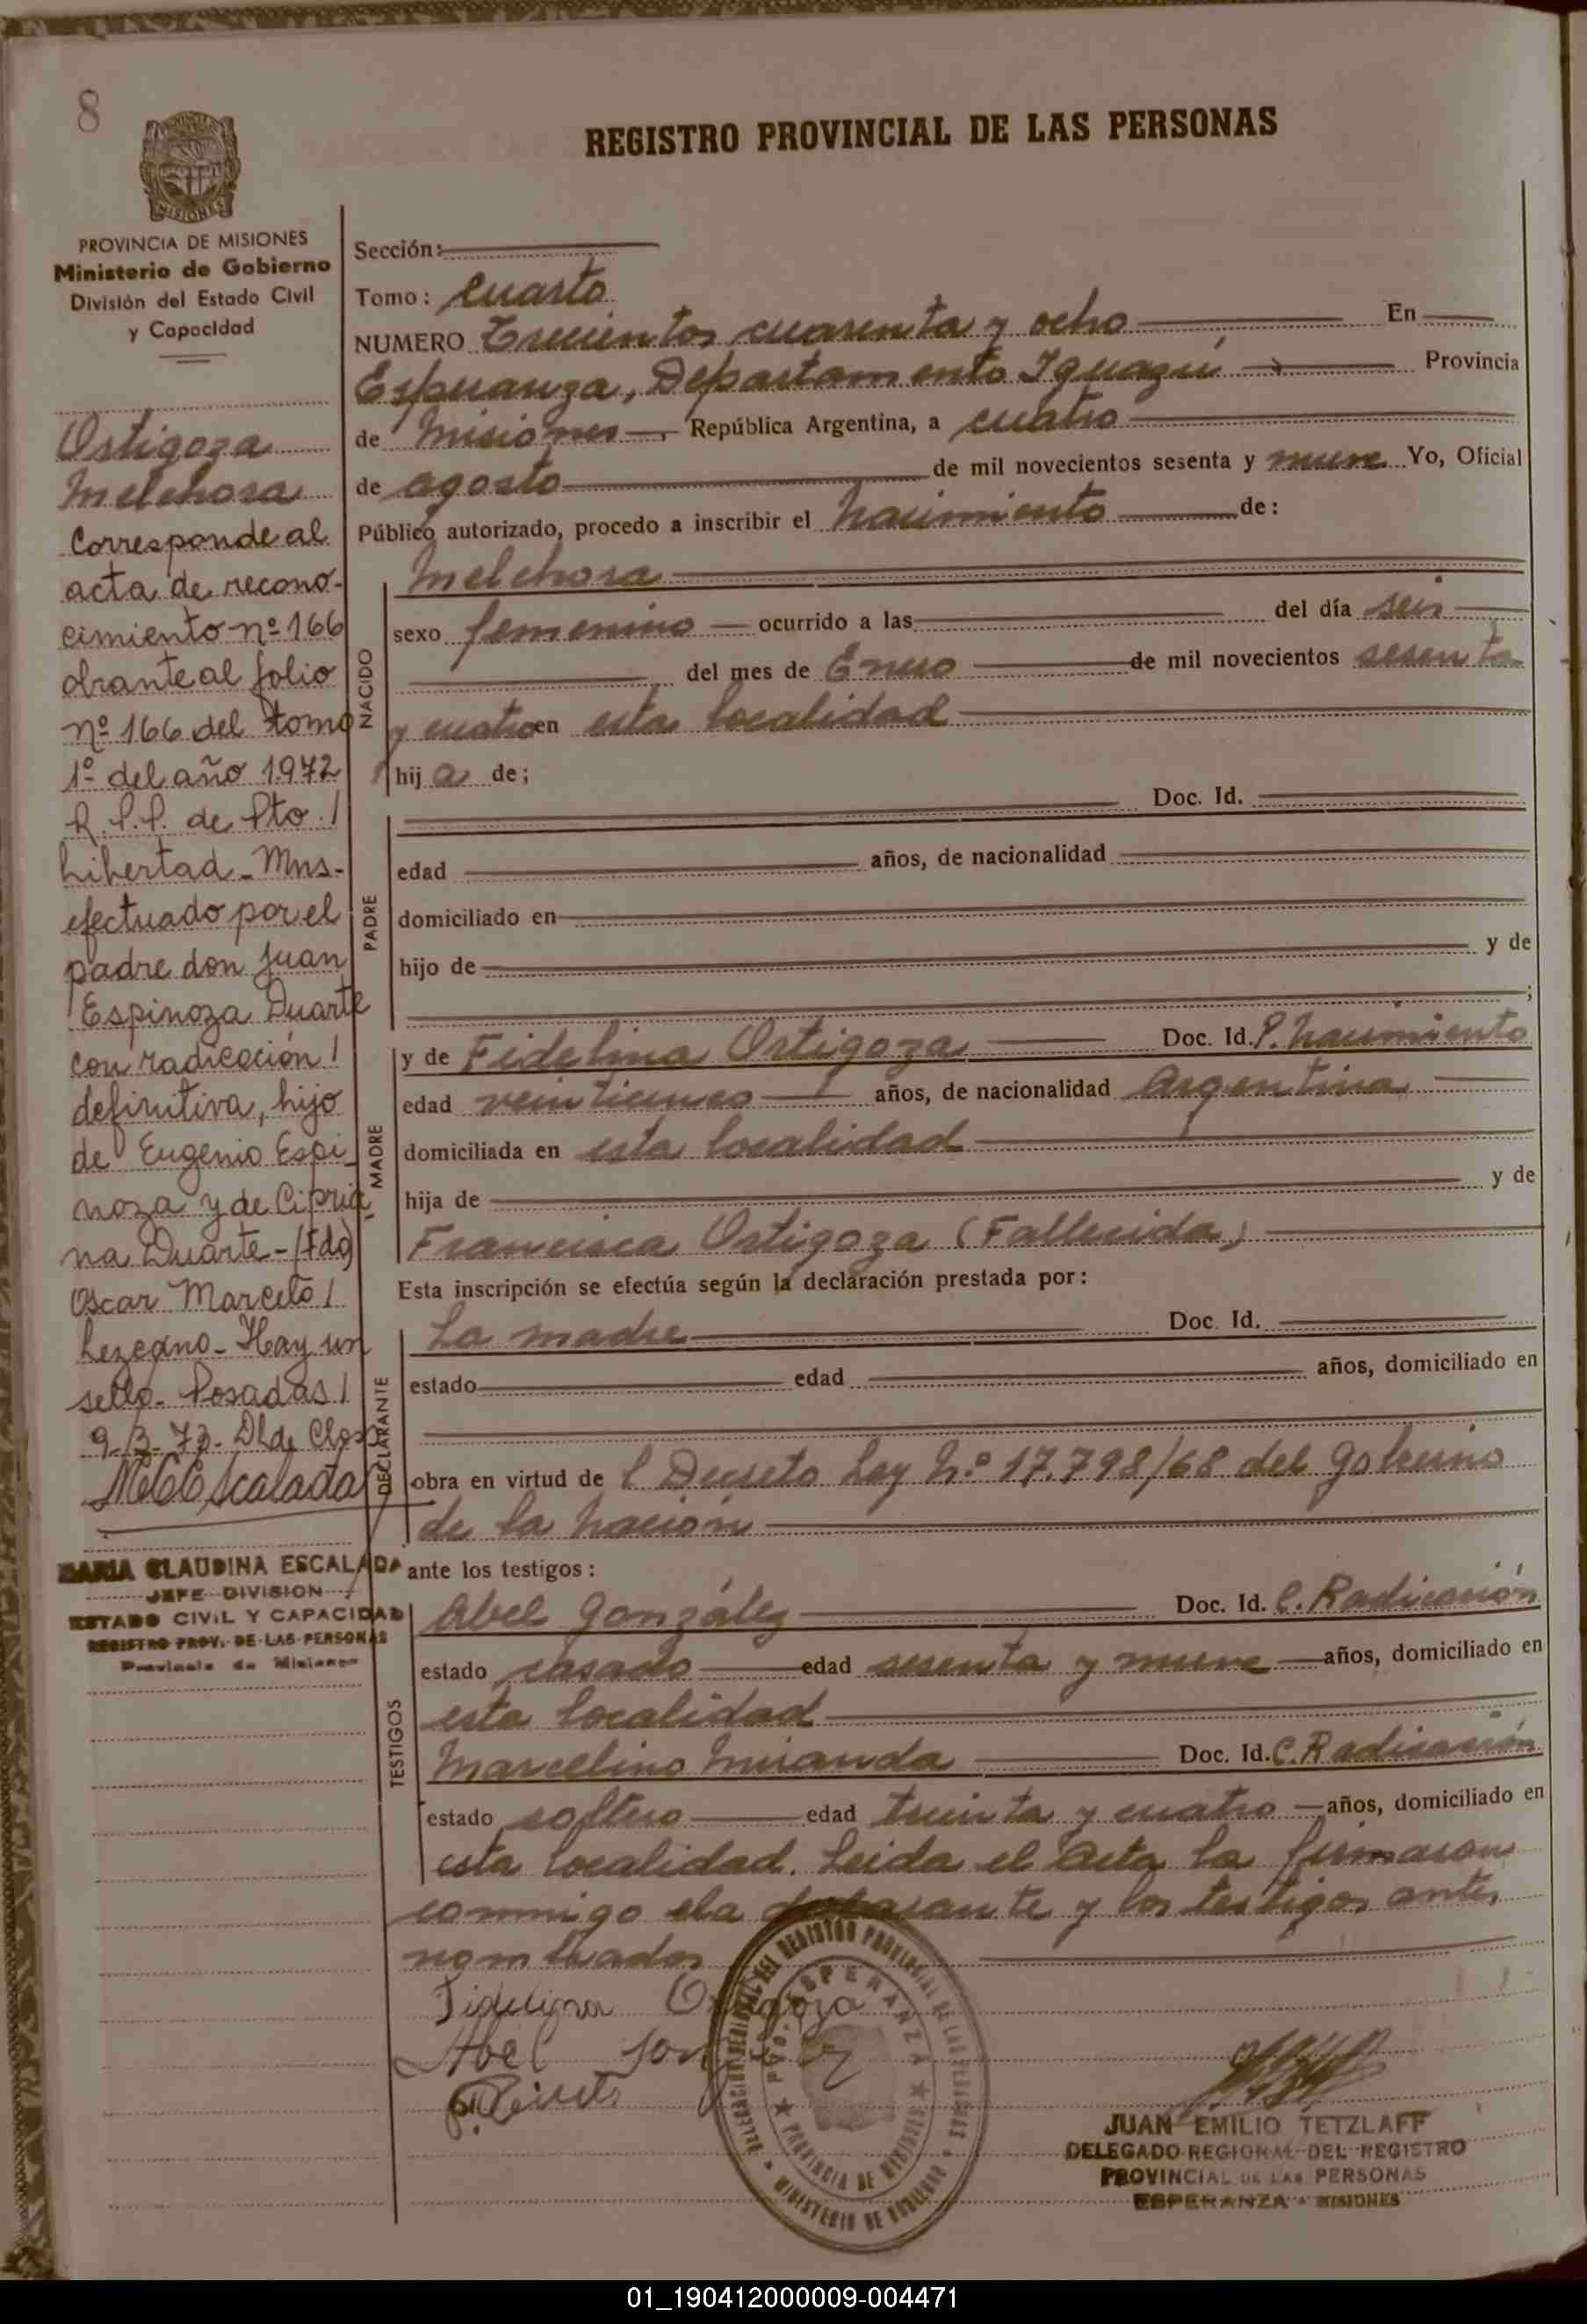 8
REGISTRO PROVINCIAL DE LAS PERSONAS
MISIONES
PROVINCIA DE MISIONES
Ministerio de Gobierno
División del Estado Civil
y Capacidad
Ortigoza
Melchora
Corresponde al
acta de recono-
cimiento nº 166
obrante al folio
nº 166 del tomo
1º del año 1972
R.P.P. de Pto. /
Libertad - Mns.-
efectuado por el
padre don Juan
Espinoza Duarte
con radicación /
definitiva, hijo
de Eugenio Espi-
noza y de Cipria-
na Duarte - (Fdo)
Oscar Marcelo /
Lezcano - Hay un
sello - Posadas /
MARIA CLAUDINA ESCALADA
JEFE DIVISION
ESTADO CIVIL Y CAPACIDAD
REGISTRO PROV. DE LAS PERSONAS
Provincia de Misiones
Sección:
Tomo: Cuarto
NUMERO Trecientos cuarenta y ocho En
Esperanza, Departamento Iguazú Provincia
de Misiones, República Argentina, a cuatro
de agosto de mil novecientos sesenta y nueve Yo, Oficial
Público autorizado, procedo a inscribir el Nacimiento de:
NACIDO
Melchora
sexo femenino ocurrido a las del día seis
del mes de Enero de mil novecientos sesenta
y cuatro en esta localidad
hija de;
PADRE
Doc. Id.
edad años, de nacionalidad
domiciliado en
hijo de y de
;
MADRE
y de Fidelina Ortigoza Doc. Id. P. Nacimiento
edad años, de nacionalidad Argentina
domiciliada en esta localidad
hija de y de
Francisca Ortigoza (Fallecida)
Esta inscripción se efectúa según la declaración prestada por:
DECLARANTE
La madre Doc. Id.
estado edad años, domiciliado en
obra en virtud de l Decreto Ley N.º 17.798/68 del Gobierno
de la Nación
ante los testigos:
TESTIGOS
Abel González Doc. Id. C. Radicación
estado casado edad sesenta y nueve años, domiciliado en
esta localidad
Marcelino Miranda Doc. Id. C. Radicación
estado soltero edad treinta y cuatro años, domiciliado en
esta localidad. Leida el Acta la firmaron
conmigo y los testigos antes
nombrados
Fidelina Ortigoza
Abel
DELEGACION REGIONAL DEL REGISTRO PROVINCIAL DE LAS PERSONAS
PTO. ESPERANZA
PROVINCIA DE MISIONES
MINISTERIO DE GOBIERNO
JUAN EMILIO TETZLAFF
DELEGADO REGIONAL DEL REGISTRO
PROVINCIAL DE LAS PERSONAS
ESPERANZA - MISIONES
01_190412000009-004471